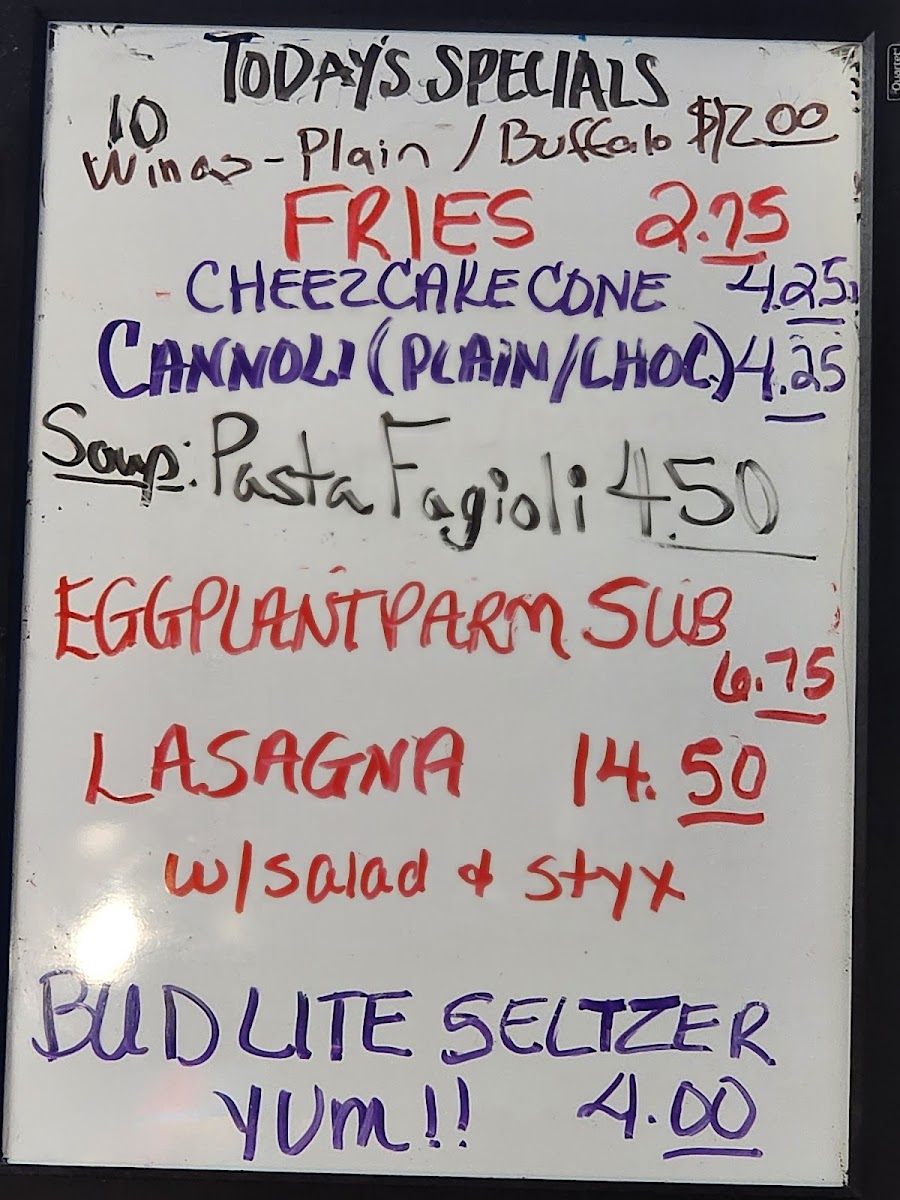 TODAY'S SPECIALS
10
Wings - Plain / Buffalo $12.00
FRIES 2.75
CHEEZCAKE CONE 4.25
CANNOLI (PLAIN/CHOC.) 4.25
Soup: Pasta Fagioli 4.50
EGGPLANT PARM SUB
6.75
LASAGNA 14.50
w/salad & styx
BUD LITE SELTZER
YUM!! 4.00
Quartet